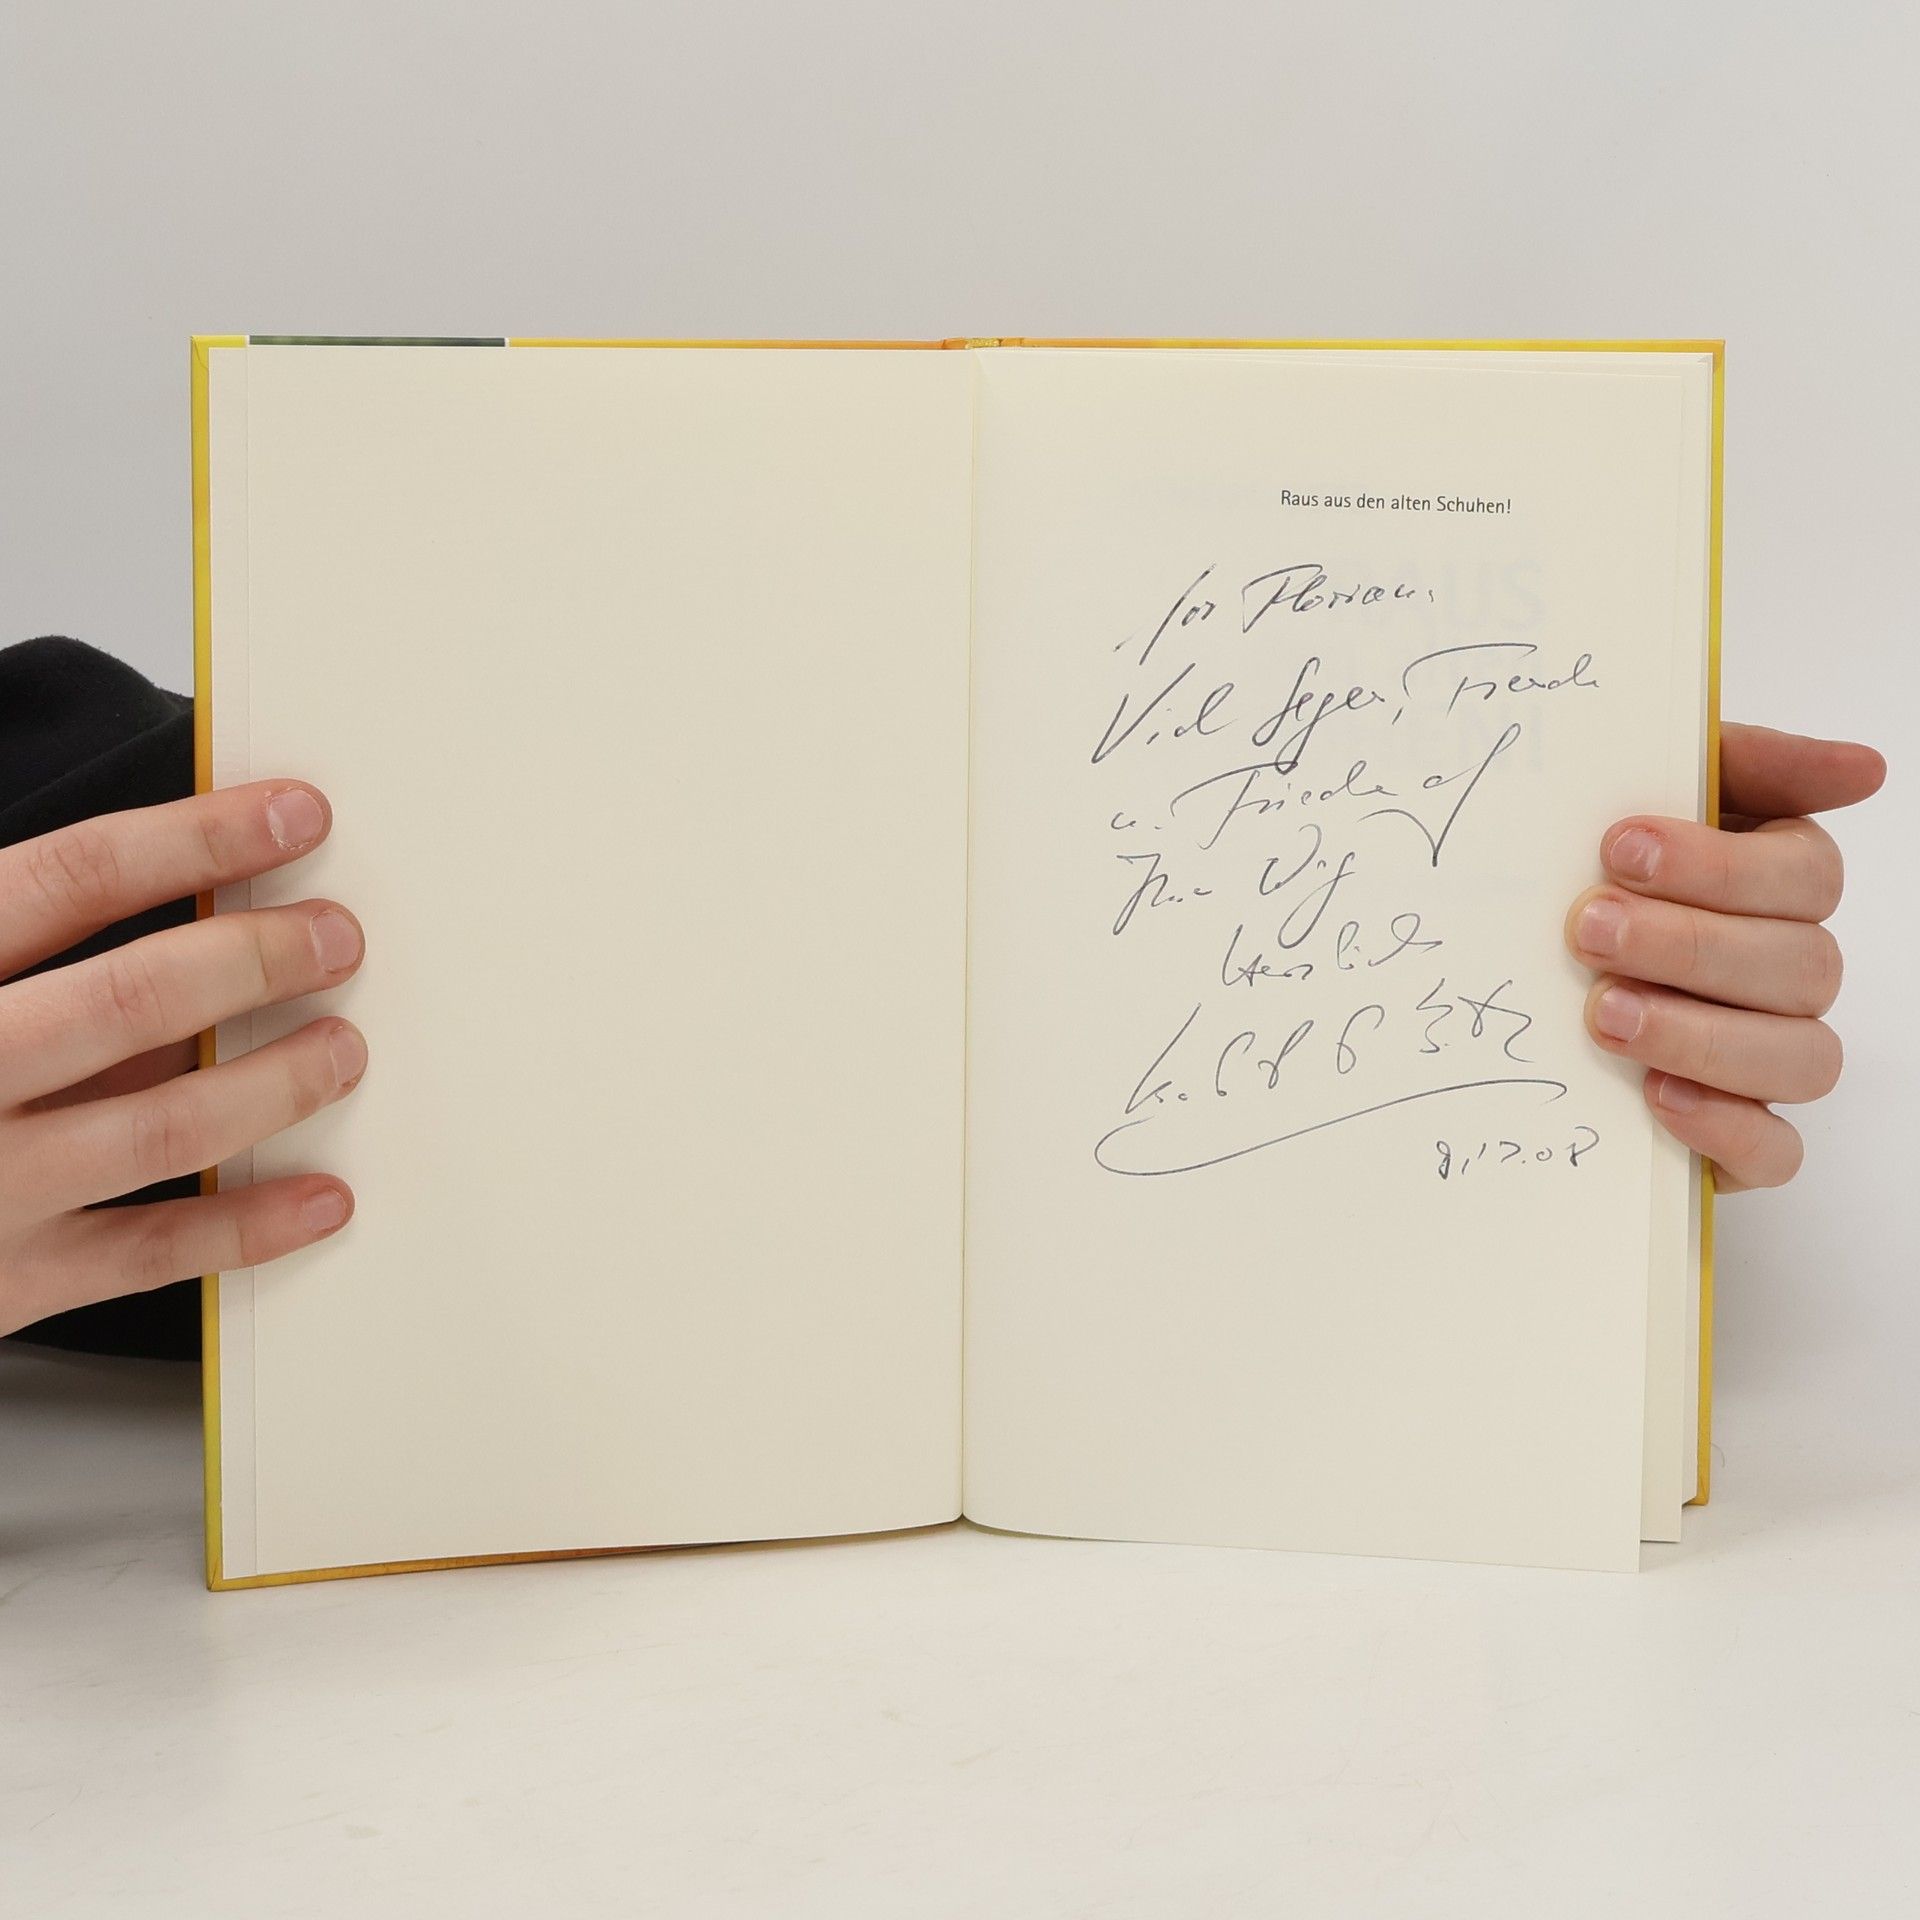 Raus aus den alten Schuhen!
für Florian.
Viel Segen, Freude
u. Friede auf
Ihr Weg
Herzlich